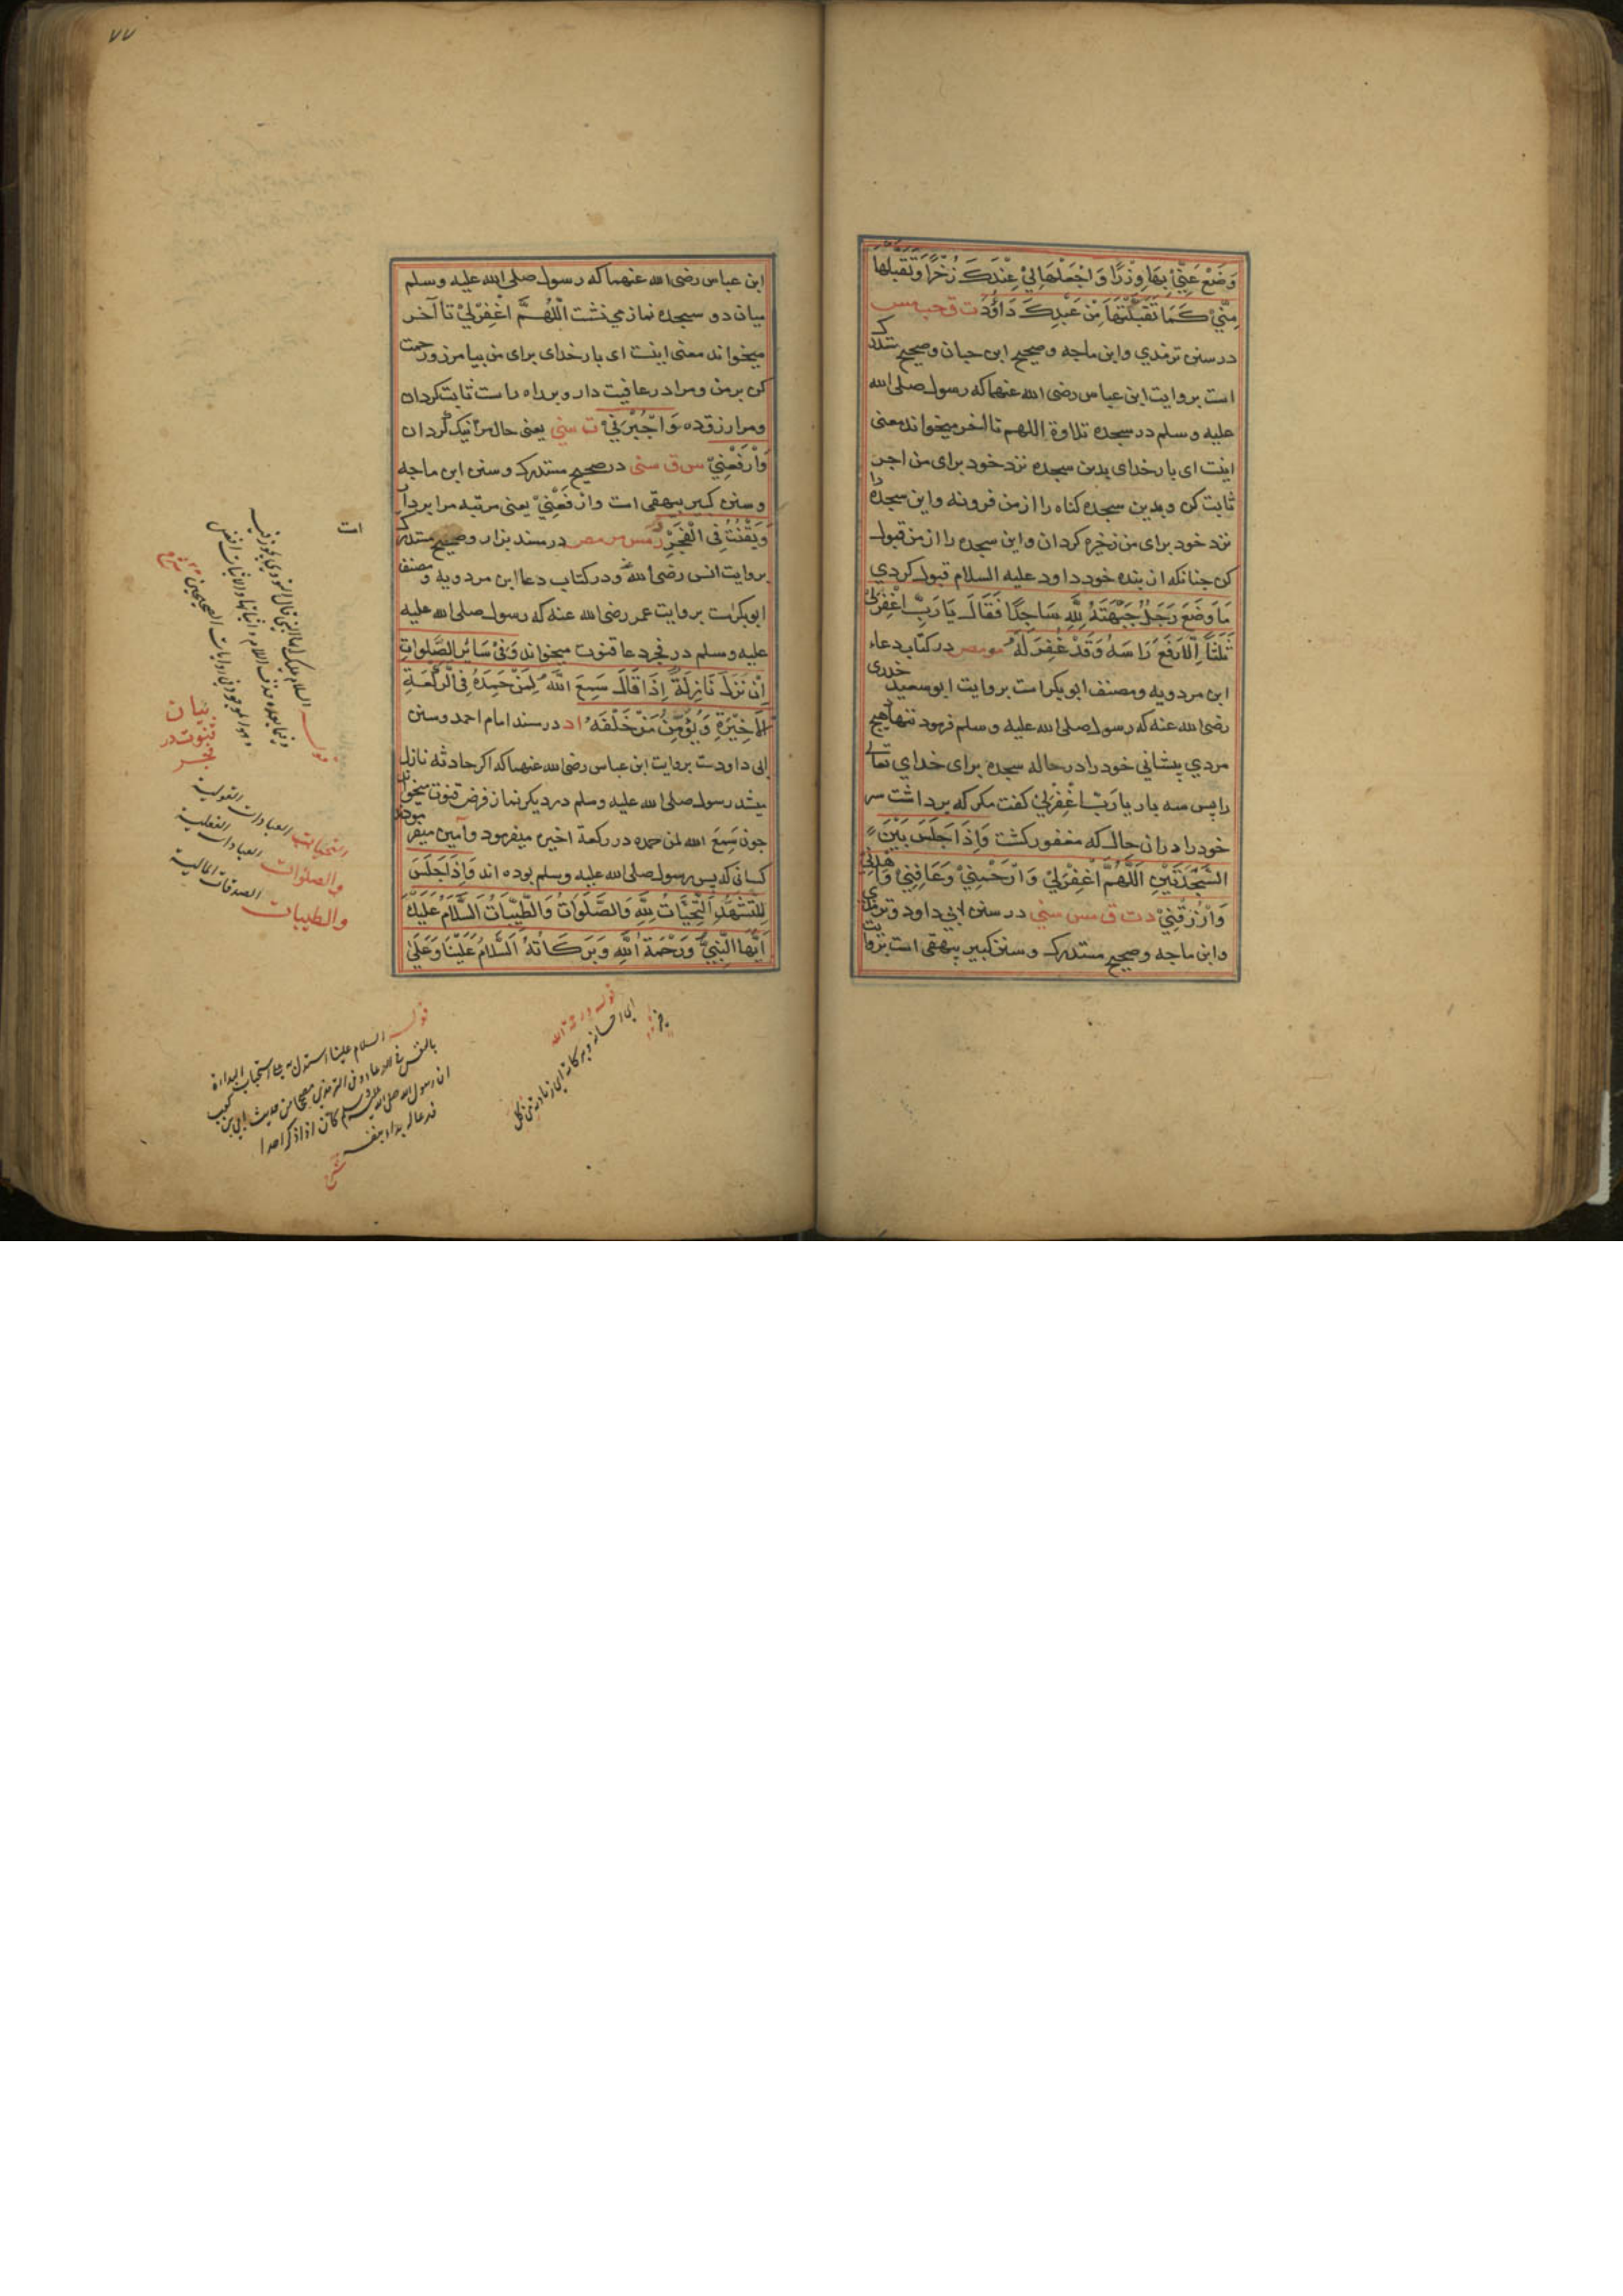 وَضَعْ عَنِّيْ بِهَا وِزْرًا وَاجْعَلْهَا لِيْ عِنْدَكَ ذُخْرًا وَتَقَبَّلْهَا
مِنِّيْ كَمَا تَقَبَّلْتَهَا مِنْ عَبْدِكَ دَاوُدَ ت ق حب مس
در سنن ترمذي وابن ماجه وصحيح ابن حبان وصحيح مستدرك
است بروايت ابن عباس رضی الله عنهما که رسول صلی الله
عليه وسلم در سجده تلاوة اللهم تا آخر ميخواند معنی
اينست ای بار خدای بدين سجده نزد خود برای من اجر
ثابت کن وبدين سجده کناه را از من فرونه واين سجده را
نزد خود برای من ذخيره کردان واين سجده را از من قبول
کن چنانکه از بنده خود داود عليه السلام قبول کردي
مَا وَضَعَ رَجُلٌ جَبْهَتَهُ لِلّٰهِ سَاجِدًا فَقَالَ يَا رَبِّ اغْفِرْلِيْ
ثَلٰثًا اِلَّا رَفَعَ رَاسَهُ وَقَدْ غُفِرَ لَهُ مو مص در کتاب دعاء
ابن مردويه ومصنف ابو بکر است بروايت ابو سعيد خدری
رضی الله عنه که رسول صلی الله عليه وسلم فرمود ننهاد هيچ
مردي پيشاني خود را در حاله سجده برای خداي تعالی
را پس سه بار يا رَبِّ اغْفِرْلِيْ کفت مکر که برداشت سر
خود را دران حال که مغفور کشت وَاِذَا جَلَسَ بَيْنَ
السَّجْدَتَيْنِ اَللّٰهُمَّ اغْفِرْلِيْ وَارْحَمْنِيْ وَعَافِنِيْ وَاهْدِنِيْ
وَارْزُقْنِيْ د ت ق مس سني در سنن ابي داود وترمذی
وابن ماجه وصحيح مستدرك وسنن کبير بيهقی است بروايت
٧٧
ابن عباس رضی الله عنهما که رسول صلی الله عليه وسلم
ميان دو سجده نماز مي نشست اَللّٰهُمَّ اغْفِرْلِيْ تا آخر
ميخواند معنی اينست ای بار خدای برای من بيامرز ورحمت
کن بر من ومرا در عافيت دار وبراه راست ثابت کردان
ومرا رزق ده وَاجْبُرْنِيْ ت سني يعنی حال مرا نيک کردان
وَارْفَعْنِيْ مس ق سنی در صحيح مستدرك وسنن ابن ماجه
وسنن کبير بيهقی است وَارْفَعْنِيْ يعنی مرتبه مرا بردار
وَيَقْنُتُ فِی الْفَجْرِ ر مس مو مص در مسند بزار وصحيح مستدرك
بروايت انس رضی الله عنه ودر کتاب دعا ابن مردويه ومصنف
ابو بکر است بروايت عمر رضی الله عنه که رسول صلی الله عليه
عليه وسلم در فجر دعا قنوت ميخواند وَفِیْ سَائِرِ الصَّلَوَاتِ
اِنْ نَزَلَ نَازِلَةٌ اِذَا قَالَ سَمِعَ اللّٰهُ لِمَنْ حَمِدَهُ فِی الرَّكْعَةِ
الْاَخِيْرَةِ وَيُؤَمِّنُ مَنْ خَلْفَهُ ا د در مسند امام احمد وسنن
ابی داودست بروايت ابن عباس رضی الله عنهما که اکر حادثه نازل
ميشد رسول صلی الله عليه وسلم در ديکر نماز فرض قنوت ميخواند
چون سَمِعَ الله لمن حمده در رکعة اخير ميفرمود وآمين ميفرمودند
کسانی که پس رسول صلی الله عليه وسلم بوده اند وَاِذَا جَلَسَ
لِلتَّشَهُّدِ اَلتَّحِيَّاتُ لِلّٰهِ وَالصَّلَوَاتُ وَالطَّيِّبَاتُ اَلسَّلَامُ عَلَيْكَ
اَيُّهَا النَّبِيُّ وَرَحْمَةُ اللّٰهِ وَبَرَكَاتُهُ اَلسَّلَامُ عَلَيْنَا وَعَلٰى
بيان
قنوت در
فجر
التحيات العبادات القولية
والصلوات العبادات الفعلية
والطيبات الصدقات المالية
قوله السلام علينا استدل به على استحباب البداءة
بالنفس في الدعاء وفي الترمذي مصححا من حديث ابي بن كعب
ان رسول الله صلى الله عليه وسلم كان اذا ذكر احدا
فدعا له بدأ بنفسه
قوله ورحمة الله